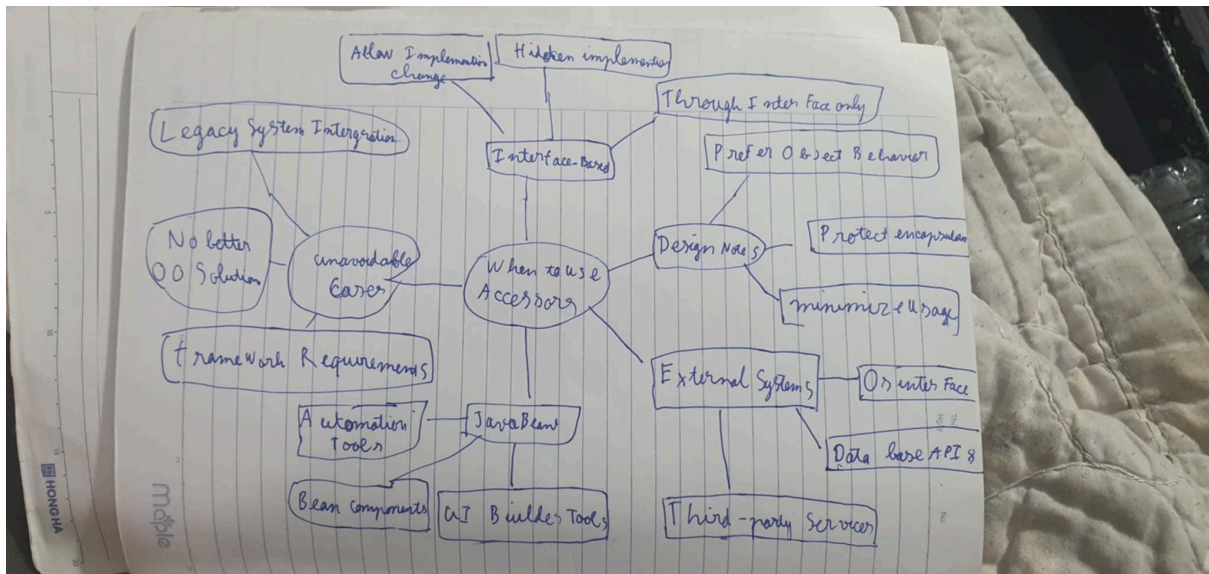 Allow Implemention
change
Hidden implemention
Through Inter Face only
Legacy System Intergration
Interface-Based
Prefer Object Behavior
No better
OO Solution
unavoidable
Cases
When to use
Accessors
Design Notes
Protect encapsulan
minimize Usage
Framework Requirements
External Systems
Os inter Face
Automation
Tools
JavaBeans
Data base API s
Bean Components
UI Builder Tools
Third-party Services
maple
HONGHA